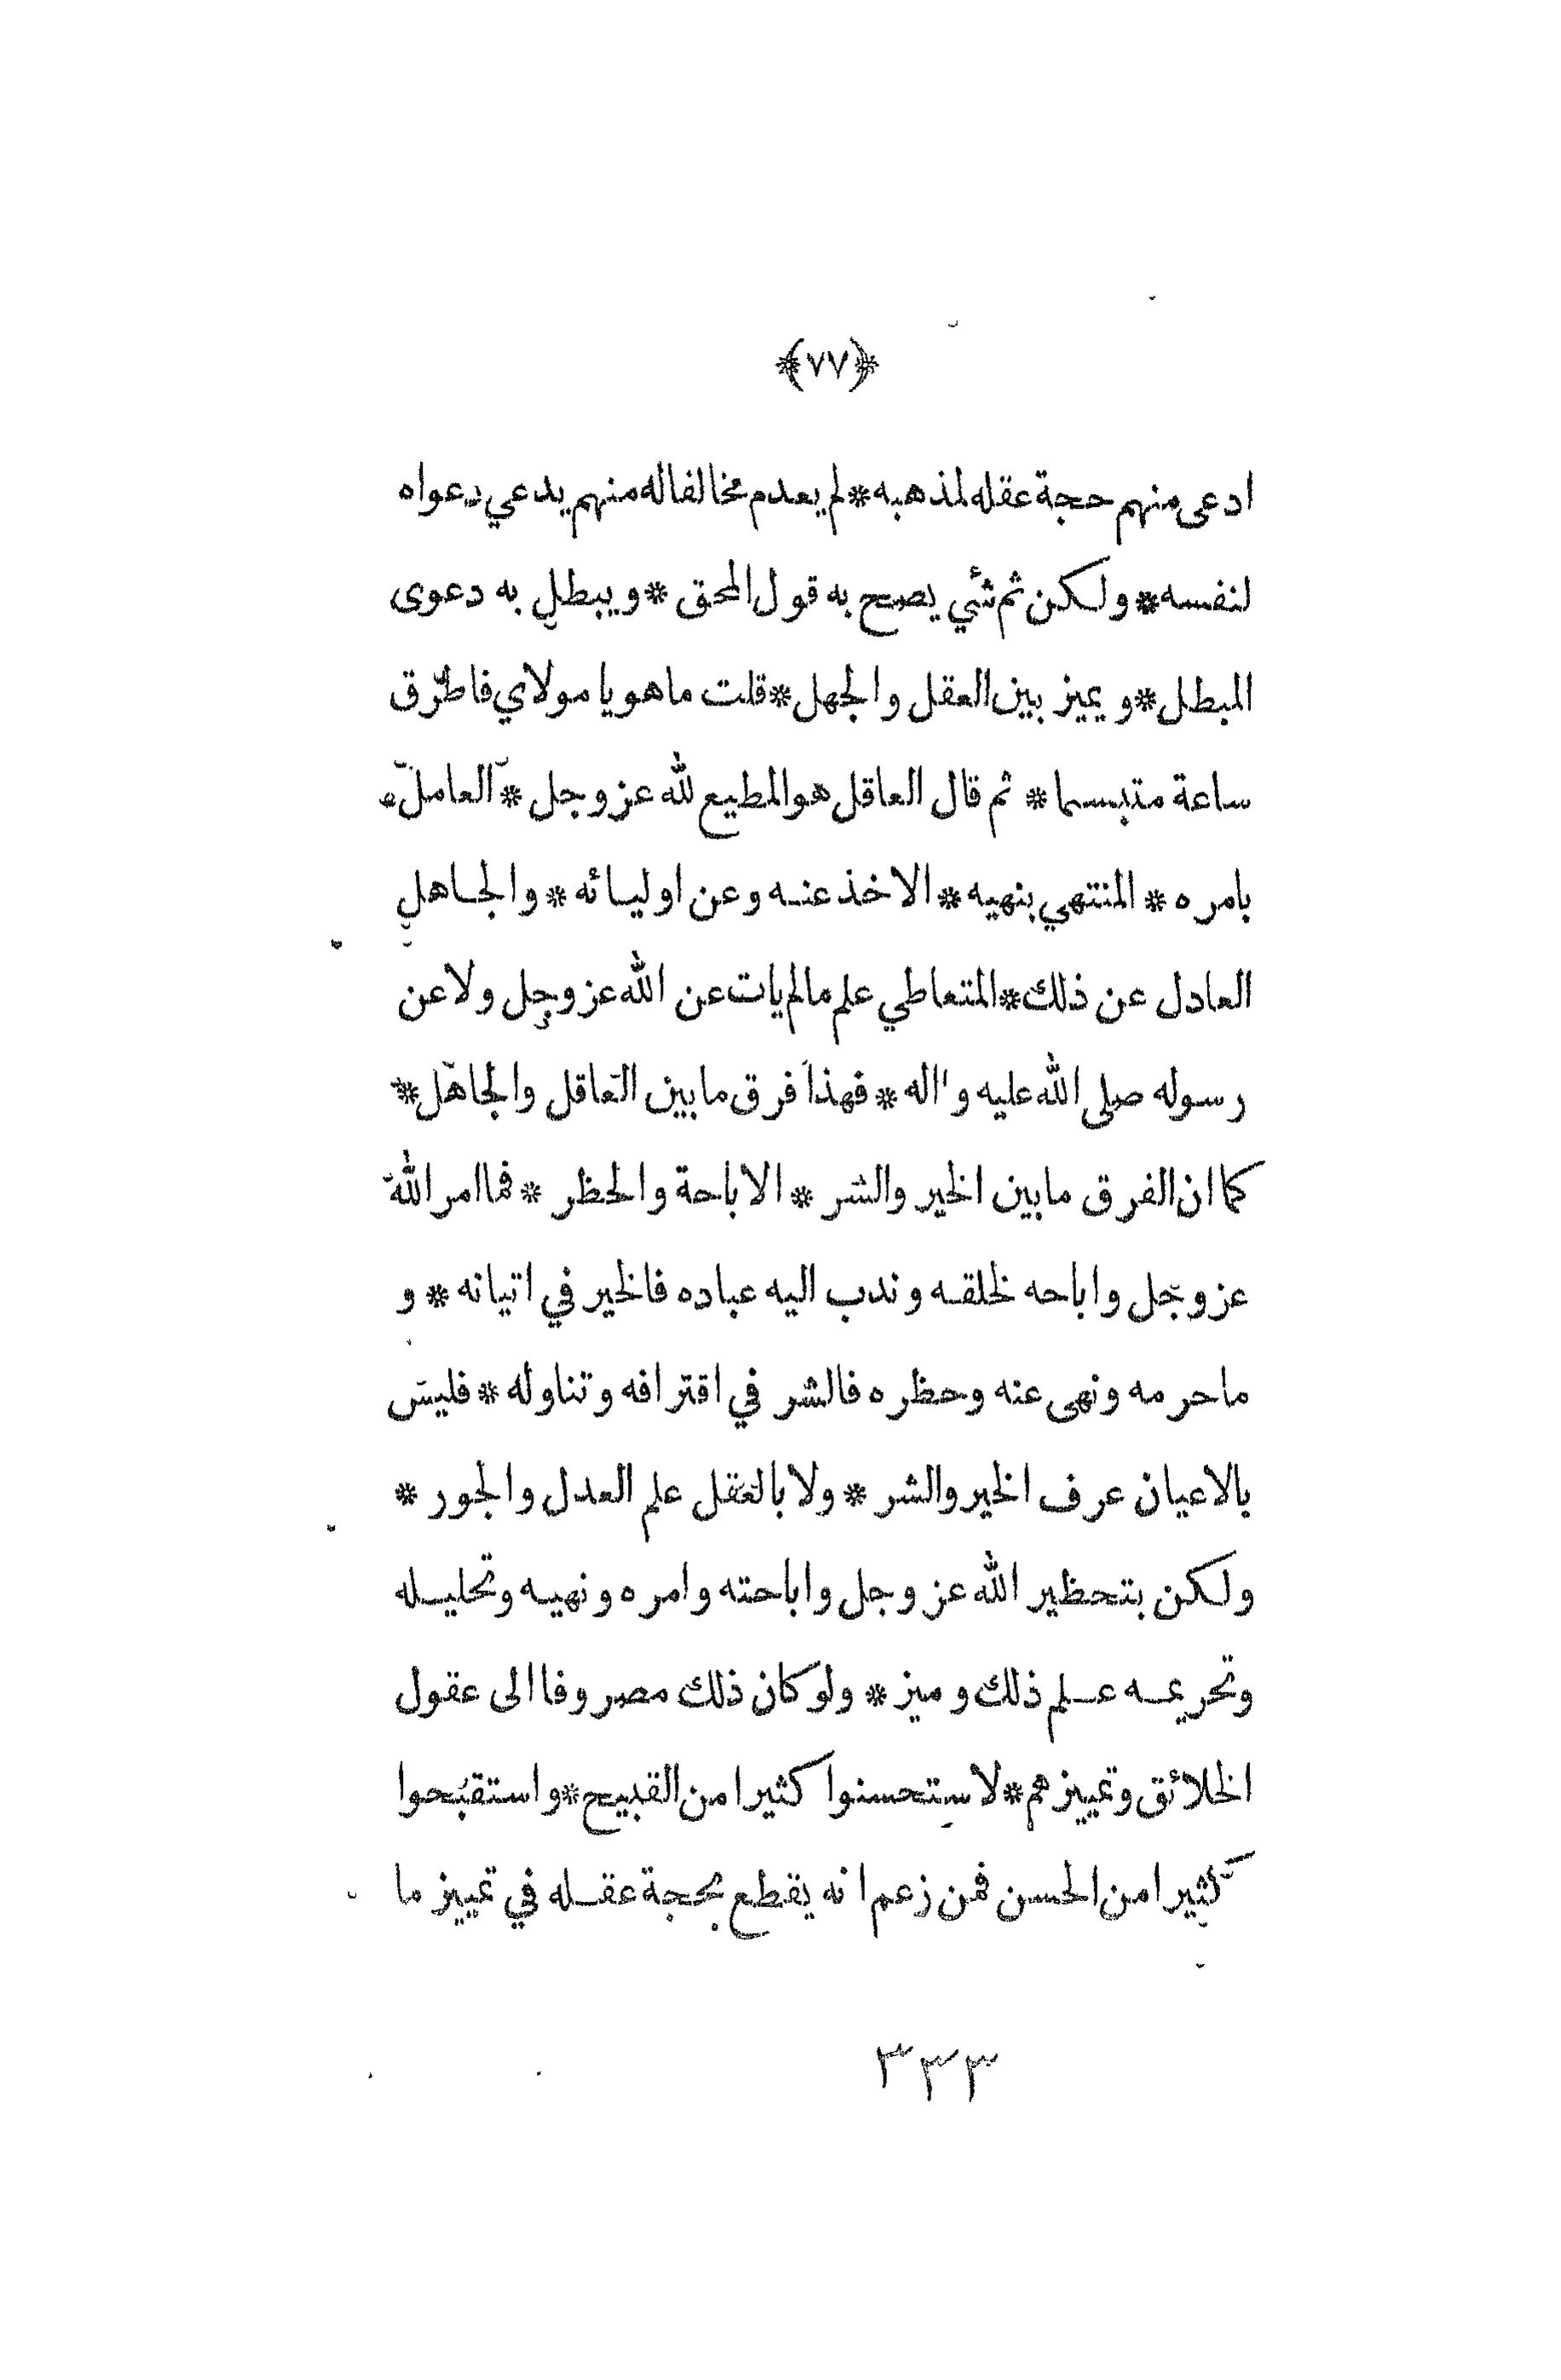 ﴿٧٧﴾
ادعى منهم حجة عقله لمذهبه * لم يعدم مخالفا له منهم يدعي دعواه
لنفسه * ولكن ثم شئي يصح به قول المحق * ويبطل به دعوى
المبطل * ويميز بين العقل والجهل * قلت ما هو يا مولاي فاطرق
ساعة متبسما * ثم قال العاقل هو المطيع لله عز وجل * العامل
بامره * المنتهي بنهيه * الاخذ عنه وعن اوليائه * والجاهل
العادل عن ذلك * المتعاطي علم ما لم يات عن الله عز وجل ولا عن
رسوله صلى الله عليه و'اله * فهذا فرق ما بين العاقل والجاهل *
كما ان الفرق ما بين الخير والشر * الاباحة والحظر * فما امر الله
عز وجل واباحه لخلقه وندب اليه عباده فالخير في اتيانه * و
ما حرمه ونهى عنه وحظره فالشر في اقترافه وتناوله * فليس
بالاعيان عرف الخير والشر * ولا بالعقل علم العدل والجور *
ولكن بتحظير الله عز وجل واباحته وامره ونهيه وتحليله
وتحريمه علم ذلك وميز * ولو كان ذلك مصروفا الى عقول
الخلائق وتمييزهم * لاستحسنوا كثيرا من القبيح * واستقبحوا
كثيرا من الحسن فمن زعم انه يقطع بحجة عقله في تمييز ما
٣٣٣